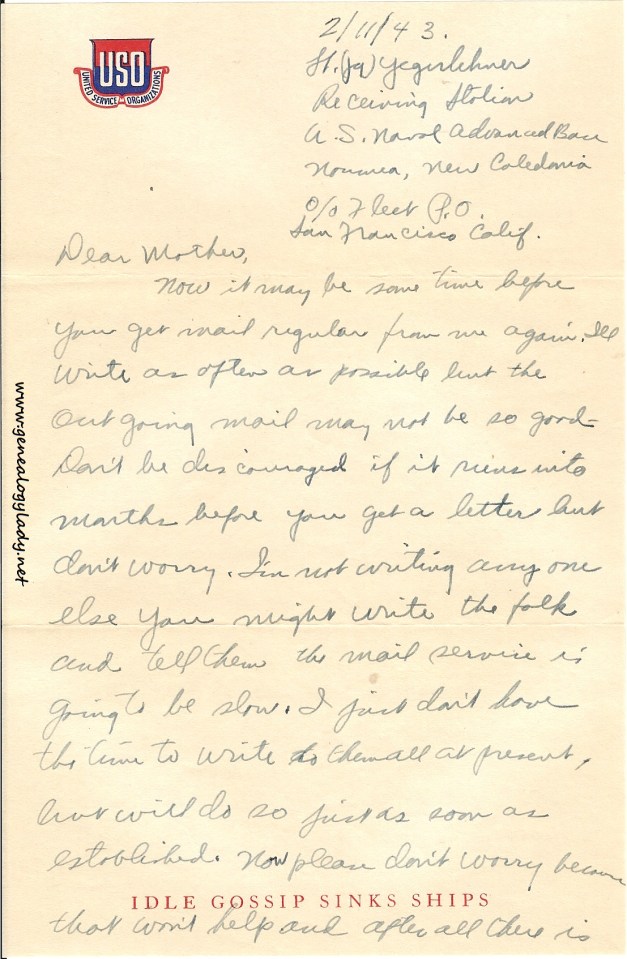 USO
UNITED SERVICE ORGANIZATIONS
2/11/43.
Lt. (jg) Yegerlehner
Receiving Station
U.S. Naval Advanced Base
Noumea, New Caledonia
c/o Fleet P.O.
San Francisco Calif.
Dear Mother,
Now it may be some time before
you get mail regular from me again. I'll
write as often as possible but the
out going mail may not be so good-
Don't be discouraged if it runs into
months before you get a letter but
don't worry. I'm not writing any one
else you might write the folk
and tell them the mail service is
going to be slow. I just don't have
the time to write to them all at present,
but will do so just as soon as
established. Now please don't worry because
IDLE GOSSIP SINKS SHIPS
that won't help and after all there is
www.genealogylady.net